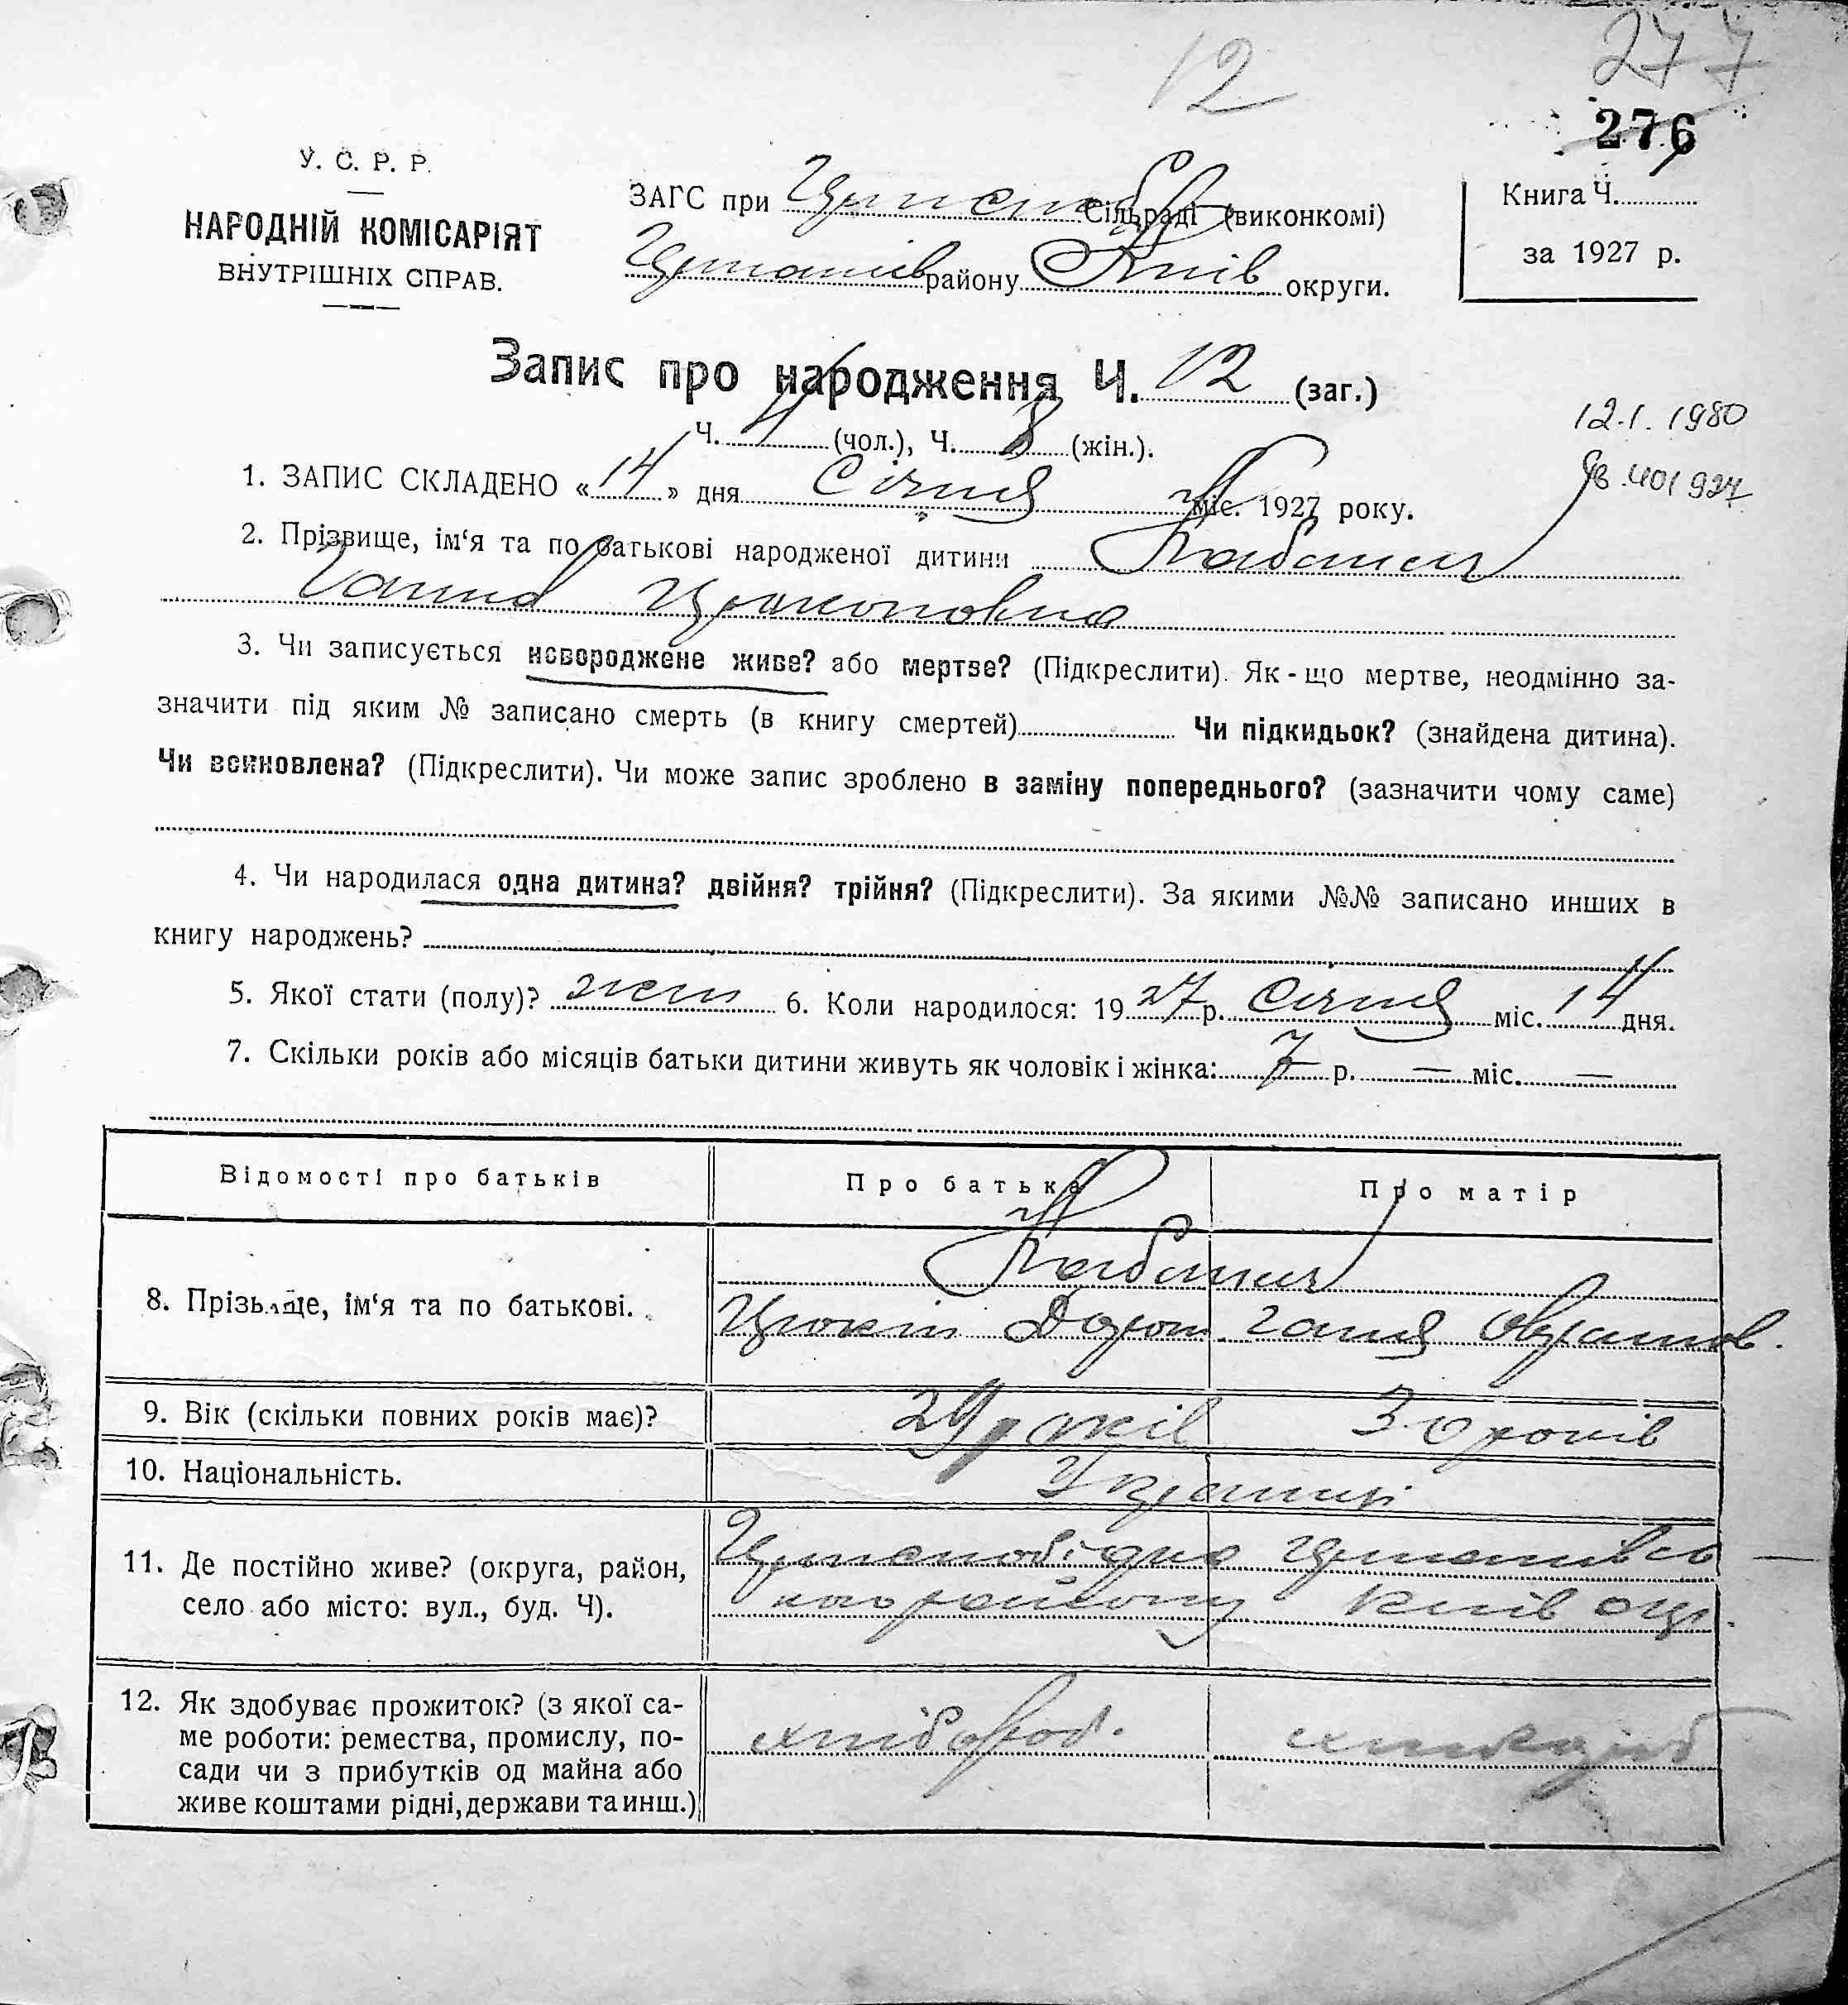 12
277
276
У. С. Р. Р.
НАРОДНІЙ КОМІСАРІЯТ
ВНУТРІШНІХ СПРАВ.
ЗАГС при Сільраді (виконкомі)
району Київ округи.
Книга Ч.
за 1927 р.
Запис про народження Ч. 12 (заг.)
Ч. 4 (чол.), Ч. 8 (жін.).
12.1.1980
401927
1. ЗАПИС СКЛАДЕНО «14» дня Січня міс. 1927 року.
2. Прізвище, ім‘я та по батькові народженої дитини Кабанец
Ганна
3. Чи записується новороджене живе? або мертве? (Підкреслити). Як-що мертве, неодмінно за-
значити під яким № записано смерть (в книгу смертей) Чи підкидьок? (знайдена дитина).
Чи всиновлена? (Підкреслити). Чи може запис зроблено в заміну попереднього? (зазначити чому саме)
4. Чи народилася одна дитина? двійня? трійня? (Підкреслити). За якими №№ записано инших в
книгу народжень?
5. Якої стати (полу)? жен 6. Коли народилося: 1927 р. Січня міс. 14 дня.
7. Скільки років або місяців батьки дитини живуть як чоловік і жінка: 7 р. — міс. —
Відомості про батьків Про батька Про матір
8. Прізвище, ім‘я та по батькові. Кабанец
Ганя
9. Вік (скільки повних років має)? 29 років 30 років
10. Національність. Українці
11. Де постійно живе? (округа, район,
село або місто: вул., буд. Ч).
кого району Київ окр.
12. Як здобуває прожиток? (з якої са-
ме роботи: ремества, промислу, по-
сади чи з прибутків од майна або
живе коштами рідні, держави та инш.)
хлібороб.